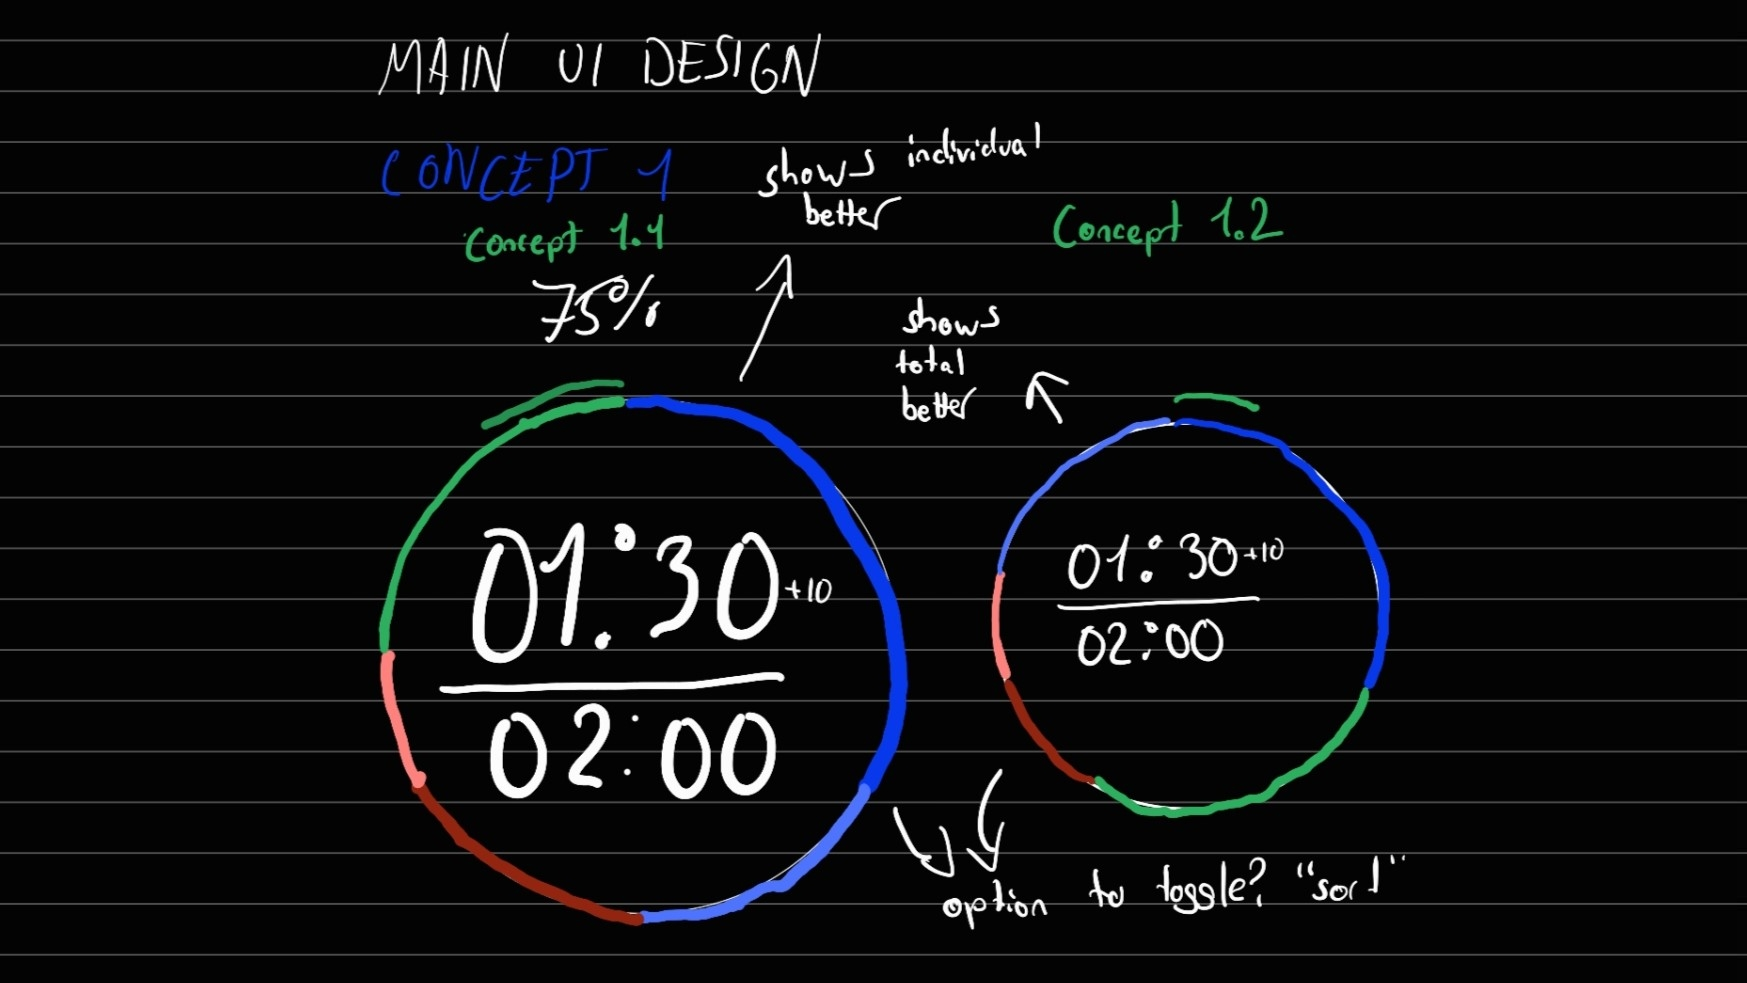 MAIN UI DESIGN
CONCEPT 1
Concept 1.1
75%
shows individual
better
Concept 1.2
shows
total
better
01:30 +10
02:00
01:30 +10
02:00
option to toggle? "sort"